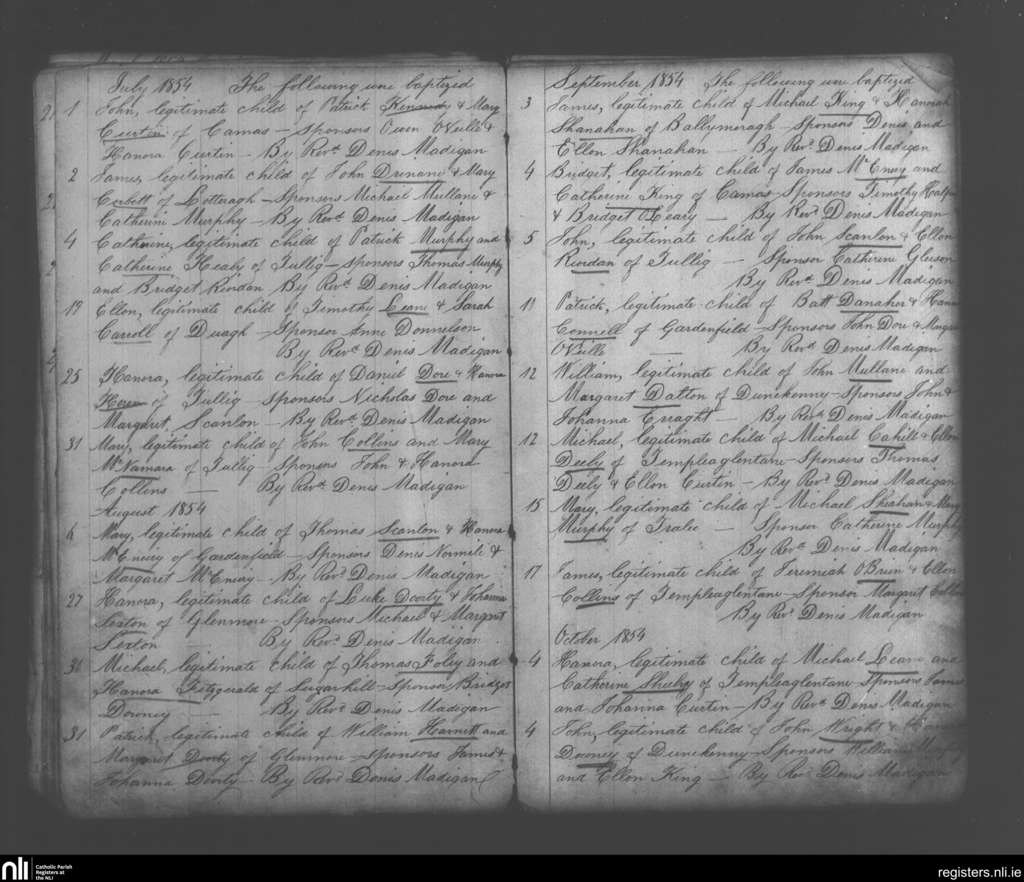 July 1854 The following were baptized
1 John, legitimate child of Patrick & Mary
Curtin of Camas – Sponsors Owen O'Neill &
Hanora Curtin – By Revd. Denis Madigan
2 James, legitimate child of John Drinane & Mary
Corbett of – Sponsors Michael Mullane &
Catherine Murphy – By Revd. Denis Madigan
4 Catherine, legitimate child of Patrick Murphy and
Catherine Healy of Tullig – Sponsors Thomas Murphy
and Bridget Riordan By Revd. Denis Madigan
19 Ellen, legitimate child of Timothy Leane & Sarah
Carroll of Duagh – Sponsor Anne Donnelson
By Revd. Denis Madigan
25 Hanora, legitimate child of Daniel Dore & Hanora
of Tullig – Sponsors Nicholas Dore and
Margaret Scanlon – By Revd. Denis Madigan
31 Mary, legitimate child of John Collens and Mary
McNamara of Tullig – Sponsors John & Hanora
Collins — By Revd. Denis Madigan
August 1854
6 Mary, legitimate child of Thomas Scanlon & Hanora
McEnery of Gardenfield – Sponsors Denis Normile &
Margaret McEneay – By Revd. Denis Madigan
27 Hanora, legitimate child of Luke Doody & Johanna
Sexton of Glenmore – Sponsors Michael & Margret
Sexton — By Revd. Denis Madigan
Michael, legitimate child of Thomas Foley and
Hanora Fitzgerald of Sugarhill – Sponsor Bridget
Downey — By Revd. Denis Madigan
31 Patrick, legitimate child of William Harnett and
Margaret Doody of Glenmore – Sponsors James &
Johanna Doody – By Revd. Denis Madigan
September 1854 The following were baptized
3 James, legitimate child of Michael King & Hanorah
Shanahan of Ballymoragh – Sponsors Denis and
Ellen Shanahan — By Revd. Denis Madigan
4 Bridget, legitimate child of James McEneay and
Catherine King of Camas – Sponsors Timothy
& Bridget O'Leary — By Revd. Denis Madigan
5 John, legitimate child of John Scanlon & Ellen
Riordan of Tullig — Sponsor Catherine Gleeson
By Revd. Denis Madigan
11 Patrick, legitimate child of Batt Danaher &
Connell of Gardenfield – Sponsors John Dore &
O'Neill — By Revd. Denis Madigan
12 William, legitimate child of John Mullane and
Margaret Dalton of Dunekenny – Sponsors John &
Johanna Enaght – By Revd. Denis Madigan
12 Michael, legitimate child of Michael Cahill & Ellen
Deely of Templeaglentane – Sponsors Thomas
Deely & Ellen Curtin – By Revd. Denis Madigan
15 Mary, legitimate child of Michael Sheahan & Mary
Murphy of Tralee — Sponsor Catherine Murphy
By Revd. Denis Madigan
17 James, legitimate child of Jeremiah O'Brien & Ellen
Collins of Templeaglentane – Sponsor Margaret
By Revd. Denis Madigan
October 1854
4 Hanora, legitimate child of Michael Leane and
Catherine Sheehy of Templeaglentane – Sponsors James
and Johanna Curtin – By Revd. Denis Madigan
4 John, legitimate child of John Wright &
Downey of Dunekenny – Sponsors William Murphy
and Ellen King — By Revd. Denis Madigan
nli
Catholic Parish
Registers at
the NLI
registers.nli.ie